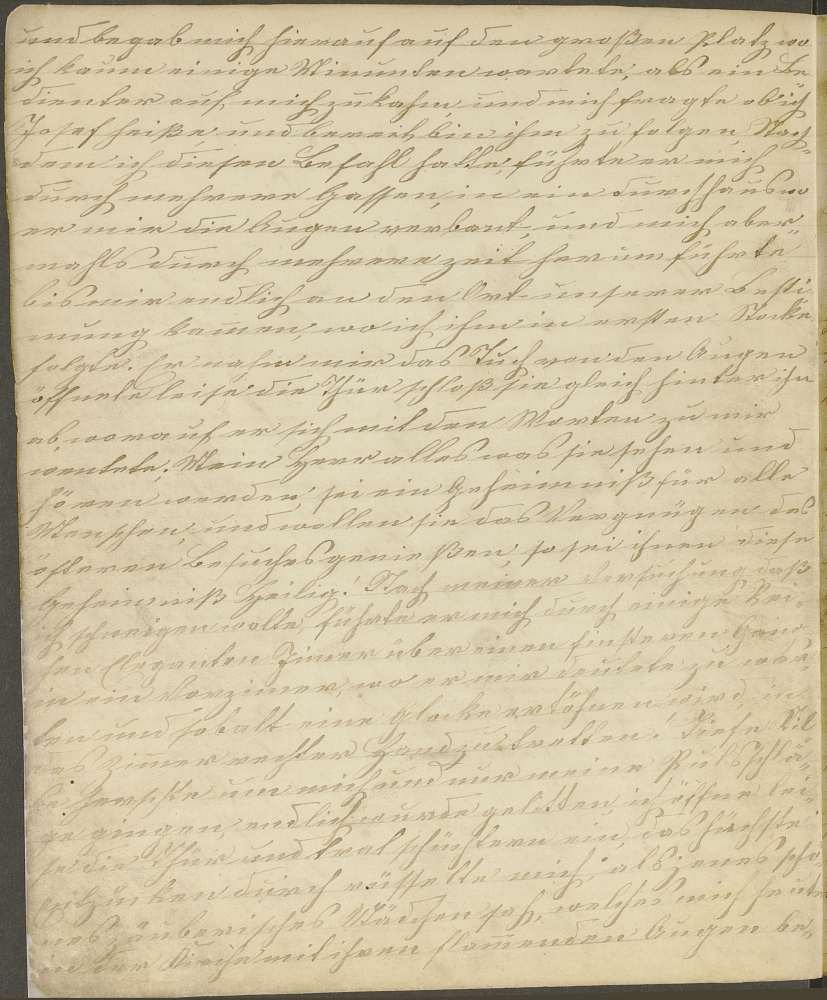 und begab mich hierauf auf den großen Platz wo
ich kaum einige Minunten wartete, als ein Be
dienter auf mich zukahm, und mich fragte ob ich
Josef heiße, und bereit bin ihm zu folgen, Nach=
dem ich diesen Befahl hatte, führte er mich
durch mehrere Gassen, in ein durchhaus wo
er mir die Augen verbant, und mich aber=
mahls durch mehrere zeit herum führte
bis wir endlich an den Ort unserer Besti
mung kamen, wo ich ihm in ersten Stocke
folgte. Er nahm mir das Tuch von den Augen
öffnete leise die Thür schloß sie gleich hinter ihn
ab, worauf er sich mit den Worten zu mir
wentete; Mein Herr alles was sie sehen und
hören werden, sei ein Geheimniß für alle
Menschen, und wollen sie das Vergnügen des
öfteren Besuches genießen, so sei ihnen diese
Geheimniß Heilig! Nach meiner Versuchung daß
ich schweigen wolle, führte er mich durch einige Rei=
hen Eleganten Zimer über einen finsteren Gang
in ein Vorzimer, wo er mir deutete zu war=
ten und sobalt eine Glocke ertöhnen wird, in
das Zimer rechter Hand zu tretten! Tiefe Stil
le herschte um mich und nur meine Pulsschlä=
ge gingen, endlich wurde gelitten ich öffne lei=
se die Thür und trat schüchtern ein, das höchste
entzüken durch rüsselte mich, als jenes schö
nes zauberisches Mädchen sah, welches mich heute
in der Kirche mit ihren flamenden Augen be=